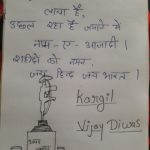 लाया है,
उछल रहा है जमाने में
नाम-ए-आजादी।
शहीदों को नमन,
जय हिन्द जय भारत।
Kargil
Vijay Diwas